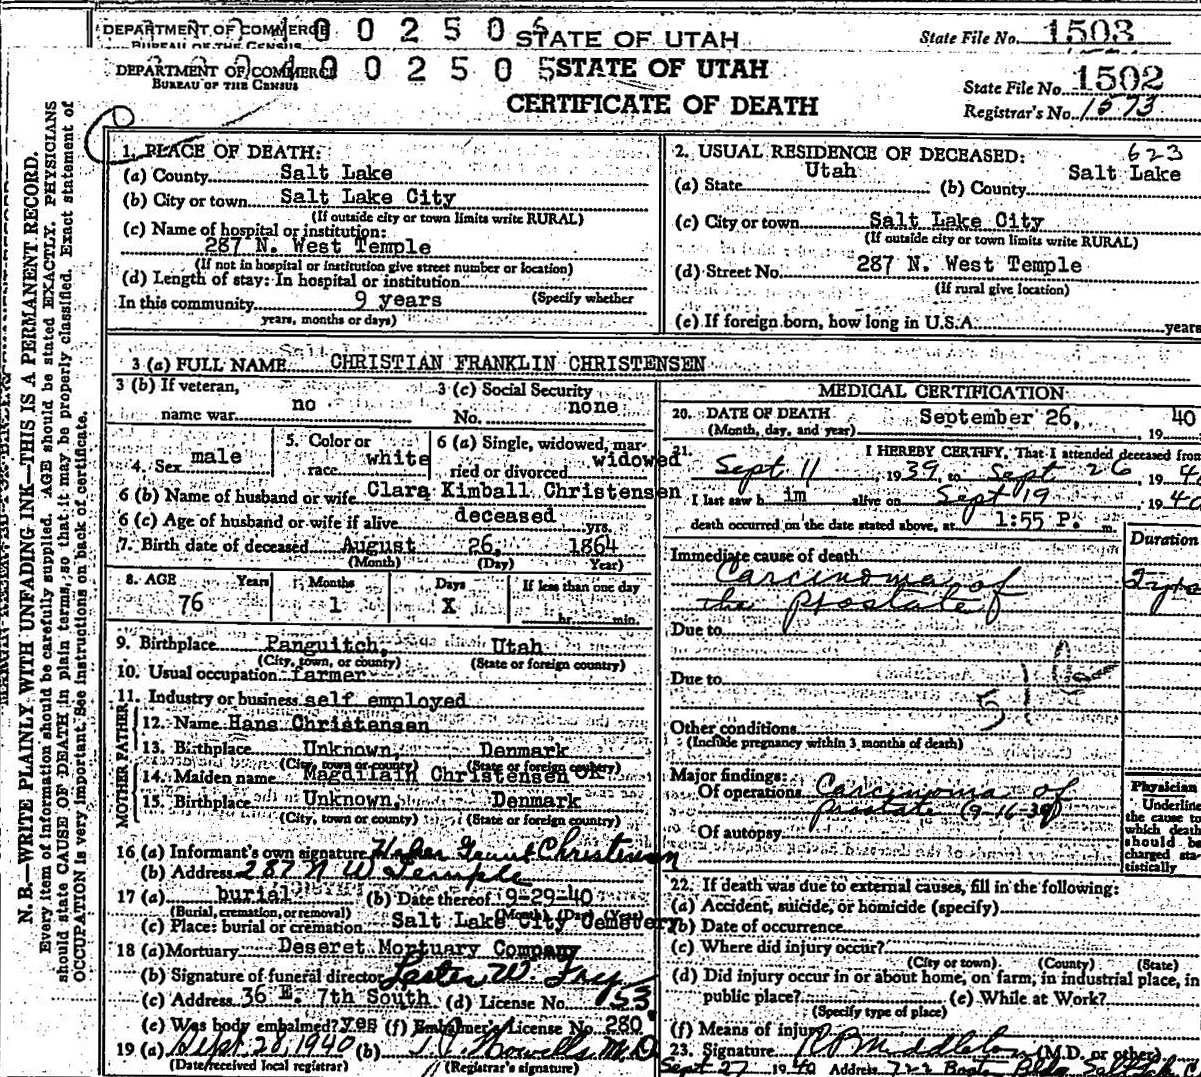 DEPARTMENT OF COMMERCE 0 0 2 5 0 STATE OF UTAH State File No. 1503
BUREAU OF THE CENSUS
DEPARTMENT OF COMMERCE 0 0 2 5 0 5 STATE OF UTAH
BUREAU OF THE CENSUS
CERTIFICATE OF DEATH
State File No. 1502
Registrar's No. 1573
N. B.—WRITE PLAINLY WITH UNFADING INK—THIS IS A PERMANENT RECORD.
Every item of information should be carefully supplied. AGE should be stated EXACTLY. PHYSICIANS
should state CAUSE OF DEATH in plain terms, so that it may be properly classified. Exact statement of
OCCUPATION is very important. See instructions on back of certificate.
1. PLACE OF DEATH:
(a) County Salt Lake
(b) City or town Salt Lake City
(If outside city or town limits write RURAL)
(c) Name of hospital or institution:
287 N. West Temple
(If not in hospital or institution give street number or location)
(d) Length of stay: In hospital or institution
In this community 9 years (Specify whether
years, months or days)
2. USUAL RESIDENCE OF DECEASED: 623
(a) State Utah (b) County Salt Lake
(c) City or town Salt Lake City
(If outside city or town limits write RURAL)
(d) Street No. 287 N. West Temple
(If rural give location)
(e) If foreign born, how long in U.S.A. years
3 (a) FULL NAME CHRISTIAN FRANKLIN CHRISTENSEN
3 (b) If veteran, 3 (c) Social Security
name war no No. none
4. Sex male 5. Color or race white 6 (a) Single, widowed, married or divorced widowed
6 (b) Name of husband or wife Clara Kimball Christensen
6 (c) Age of husband or wife if alive deceased yrs.
7. Birth date of deceased August 26, 1864
(Month) (Day) Year)
8. AGE Years Months Days If less than one day
76 1 X hr. min.
9. Birthplace Panguitch, Utah
(City, town, or county) (State or foreign country)
10. Usual occupation farmer
11. Industry or business self employed
FATHER
12. Name Hans Christensen
13. Birthplace Unknown, Denmark
(City, town or county) (State or foreign country)
MOTHER
14. Maiden name Magdilain Christensen OK
15. Birthplace Unknown, Denmark
(City, town or county) (State or foreign country)
16 (a) Informant's own signature Heber Grant Christensen
(b) Address 287 N W Temple
17 (a) burial (b) Date thereof 9-29-40
(Burial, cremation, or removal) (Month) (Day) (Year)
(c) Place: burial or cremation Salt Lake City Cemetery
18 (a) Mortuary Deseret Mortuary Company
(b) Signature of funeral director Lester W.
(c) Address 36 E. 7th South (d) License No. 53
(e) Was body embalmed? yes (f) Embalmer's License No. 280
19 (a) Sept. 28, 1940 (b) Howells M.D.
(Date received local registrar) (Registrar's signature)
MEDICAL CERTIFICATION
20. DATE OF DEATH September 26, 19 40
(Month, day, and year)
21. I HEREBY CERTIFY, That I attended deceased from
Sept 11, 1939, to Sept 26, 19 4
I last saw h im alive on Sept 19 1940
death occurred on the date stated above, at 1:55 P. m.
Duration
Immediate cause of death
Carcinoma of
the prostate
Due to
Due to
51
Other conditions
(Include pregnancy within 3 months of death)
Major findings:
Of operations Carcinoma of
prostate (9-16-39)
Of autopsy
Physician
Underline
the cause to
which death
should be
charged sta-
tistically
22. If death was due to external causes, fill in the following:
(a) Accident, suicide, or homicide (specify)
(b) Date of occurrence
(c) Where did injury occur?
(City or town) (County) (State)
(d) Did injury occur in or about home, on farm, in industrial place, in
public place? (e) While at Work?
(Specify type of place)
(f) Means of injury
23. Signature R B Middleton (M.D. or other)
Sept 27 19 40 Address 722 Boston Bldg Salt Lk C